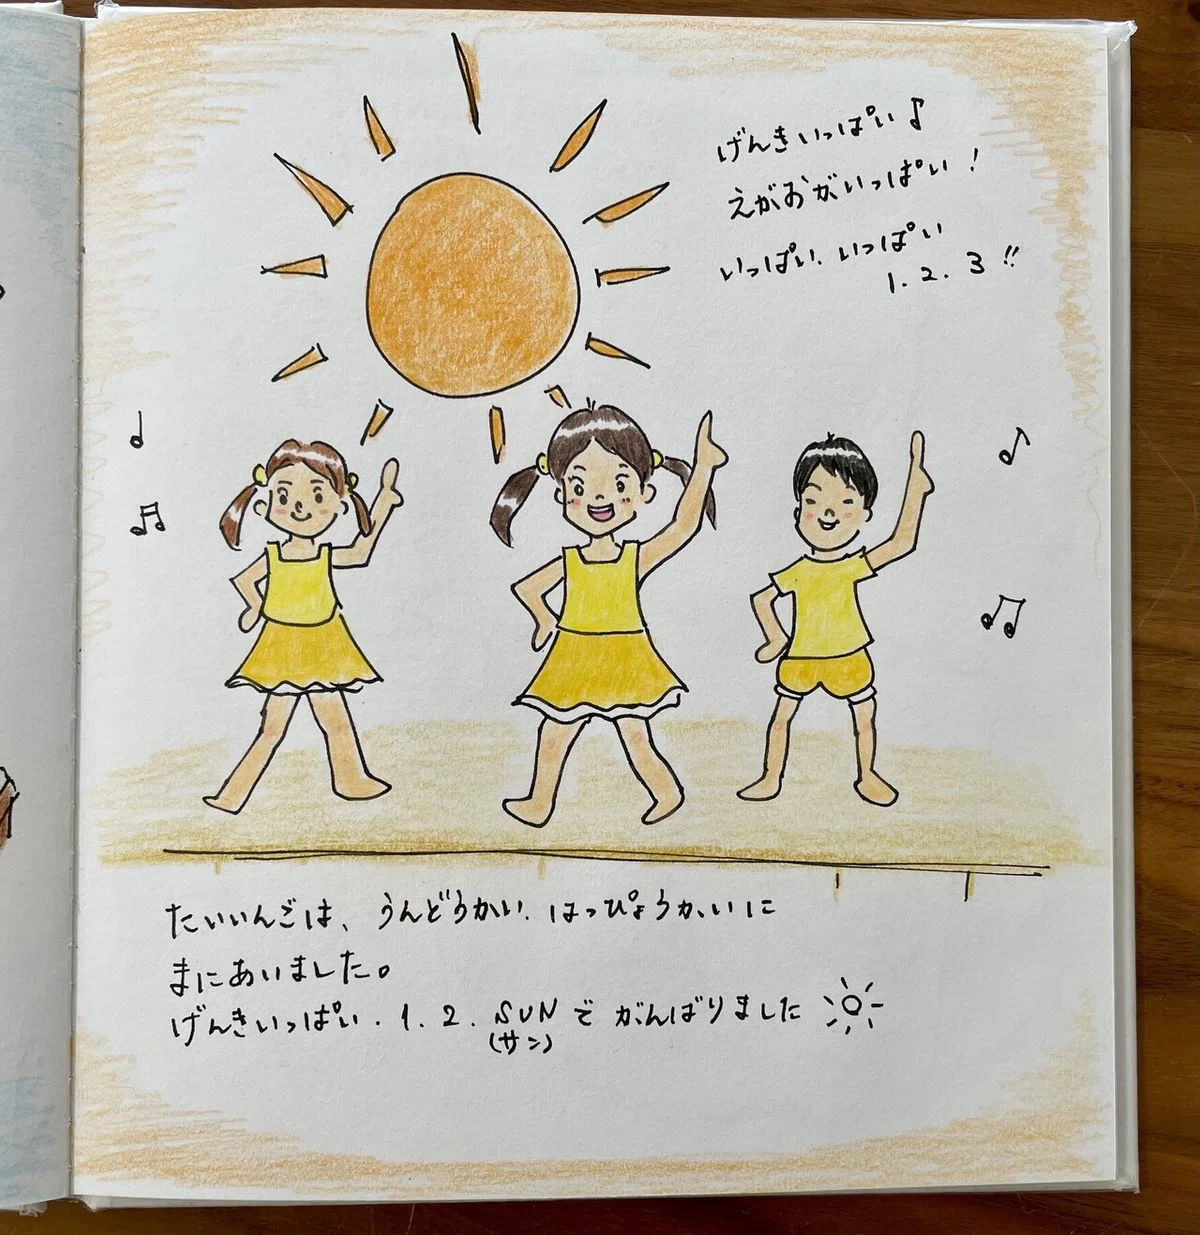 げんきいっぱい♪
えがおがいっぱい!
いっぱい.いっぱい
1.2.3!!
たいいんごは、うんどうかい.はっぴょうかいに
まにあいました。
げんきいっぱい.1.2.SUNでがんばりました
(サン)